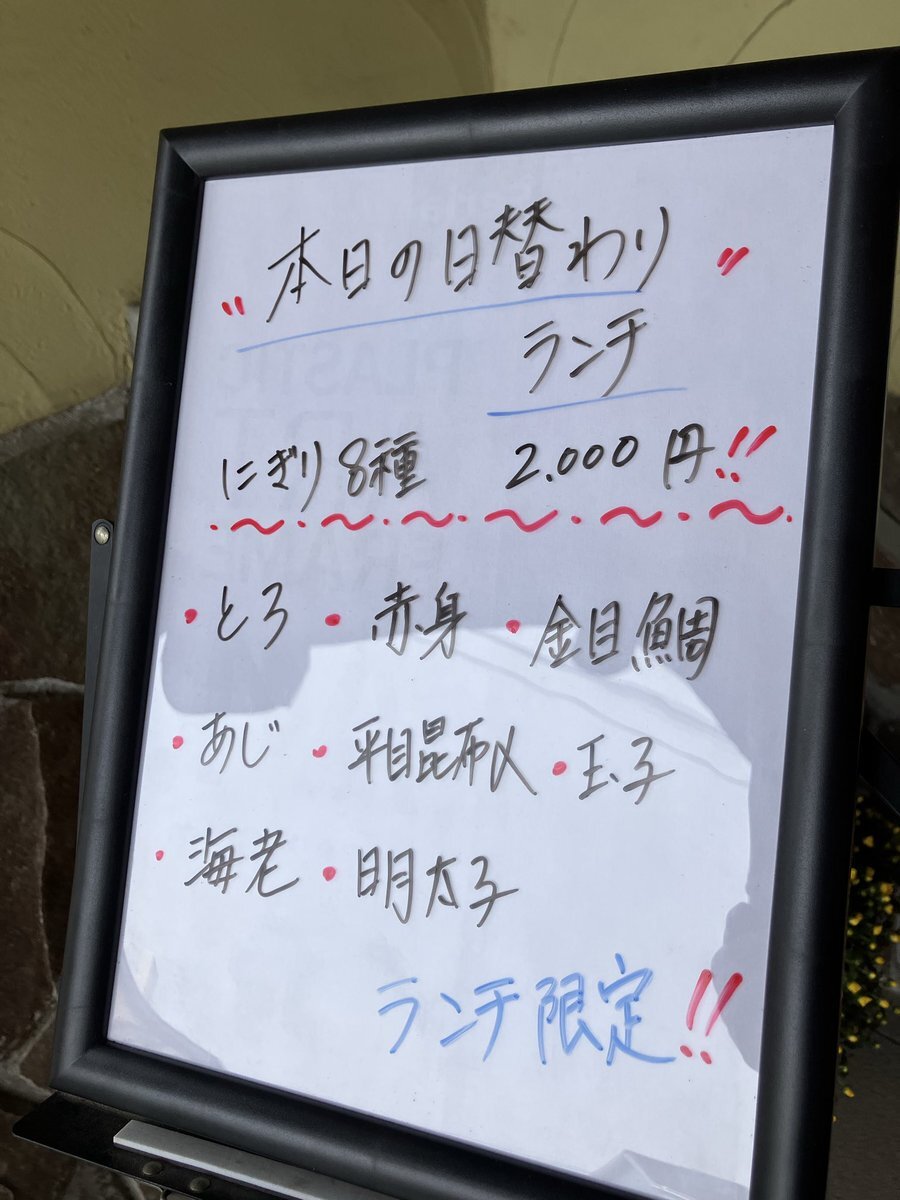 〃本日の日替わり〃
ランチ
にぎり8種 2.000円!!
・とろ ・赤身 ・金目鯛
・あじ ・平目昆布〆 ・玉子
・海老 ・明太子
ランチ限定!!